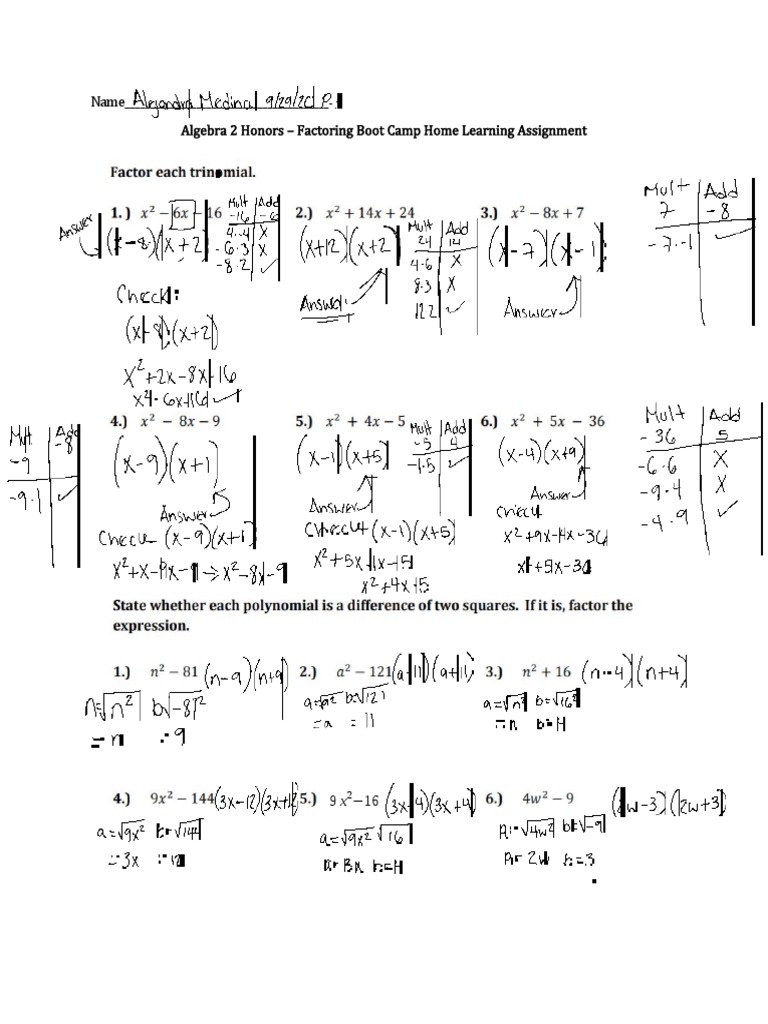 Name Alejandra Medina 9/29/20 P.
Algebra 2 Honors – Factoring Boot Camp Home Learning Assignment
Factor each trinomial.
1.) x² − 6x − 16
Mult Add
-16 -6
4·4 X
-6·3 X
-8·2 ✓
Answer
(x-8)(x+2)
Check:
(x-8)(x+2)
x²+2x-8x-16
2.) x² + 14x + 24
Mult Add
24 14
4·6 X
8·3 X
12 2 ✓
(x+12)(x+2)
Answer
3.) x² − 8x + 7
Mult Add
7 -8
-7·-1 ✓
(x-7)(x-1)
Answer
4.) x² − 8x − 9
Mult Add
-9 -8
-9·1 ✓
(x-9)(x+1)
Answer
Check (x-9)(x+1)
x²+x-9x-9 → x²-8x-9
5.) x² + 4x − 5
Mult Add
-5 4
-1·5 ✓
(x-1)(x+5)
Answer
Check (x-1)(x+5)
x²+5x-1x-5
x²+4x+5
6.) x² + 5x − 36
Mult Add
-36 5
-6·6 X
-9·4 X
-4·9 ✓
(x-4)(x+9)
Answer
Check
x²+9x-4x-36
State whether each polynomial is a difference of two squares. If it is, factor the
expression.
1.) n² − 81 (n-9)(n+9)
= n = 9
2.) a² − 121 (a-11)(a+11)
a=√a² b=√121
=a = 11
3.) n² + 16 (n-4)(n+4)
a=√n² b=√16²
= n
4.) 9x² − 144 (3x-12)(3x+12)
a=√9x² b=√144
=3x =12
5.) 9x²−16 (3x-4)(3x+4)
a=√9x² √16
6.) 4w² − 9 (2w-3)(2w+3)
√4w² b=√-9
2w b=3